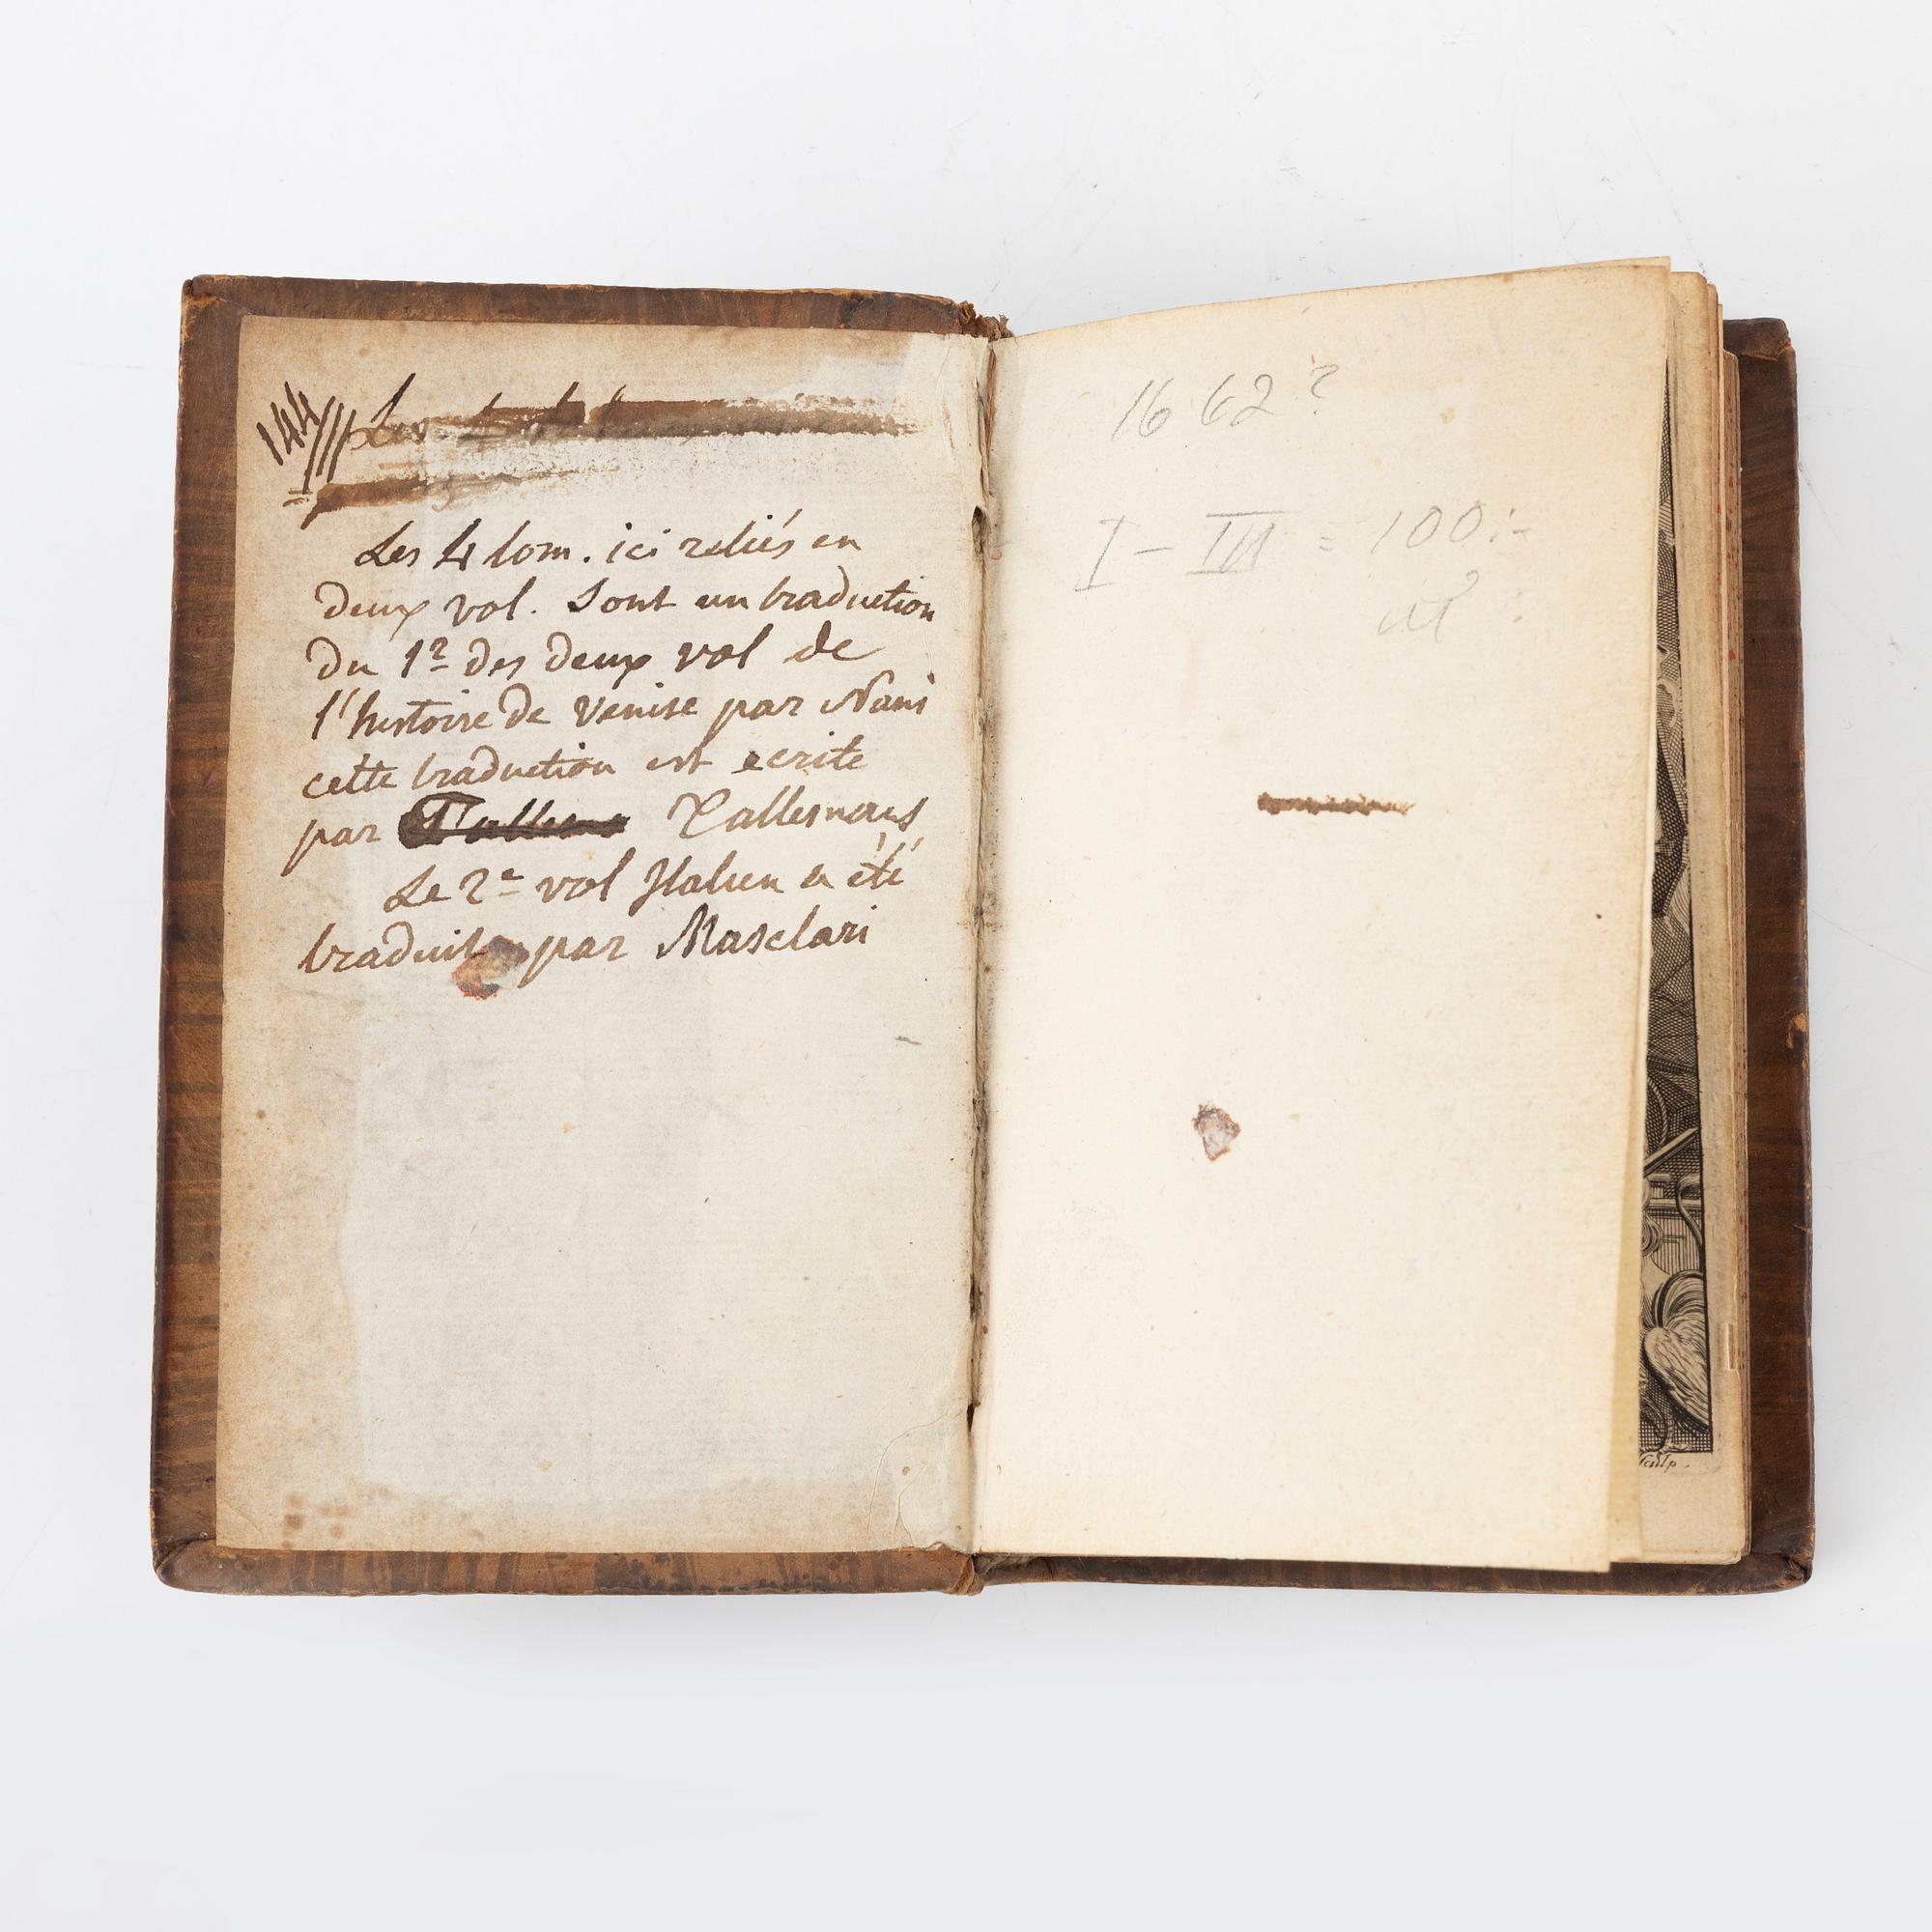 144
Les
Les 4 tom. ici reliés en
deux vol. Sont un traduction
du 1r des deux vol de
l'histoire de Venise par Nani
cette traduction est ecrite
par Tallemans Tallemans
Le 2e vol Italien a été
traduit par Masclari
1662?
I - III = 100:-
sculp.